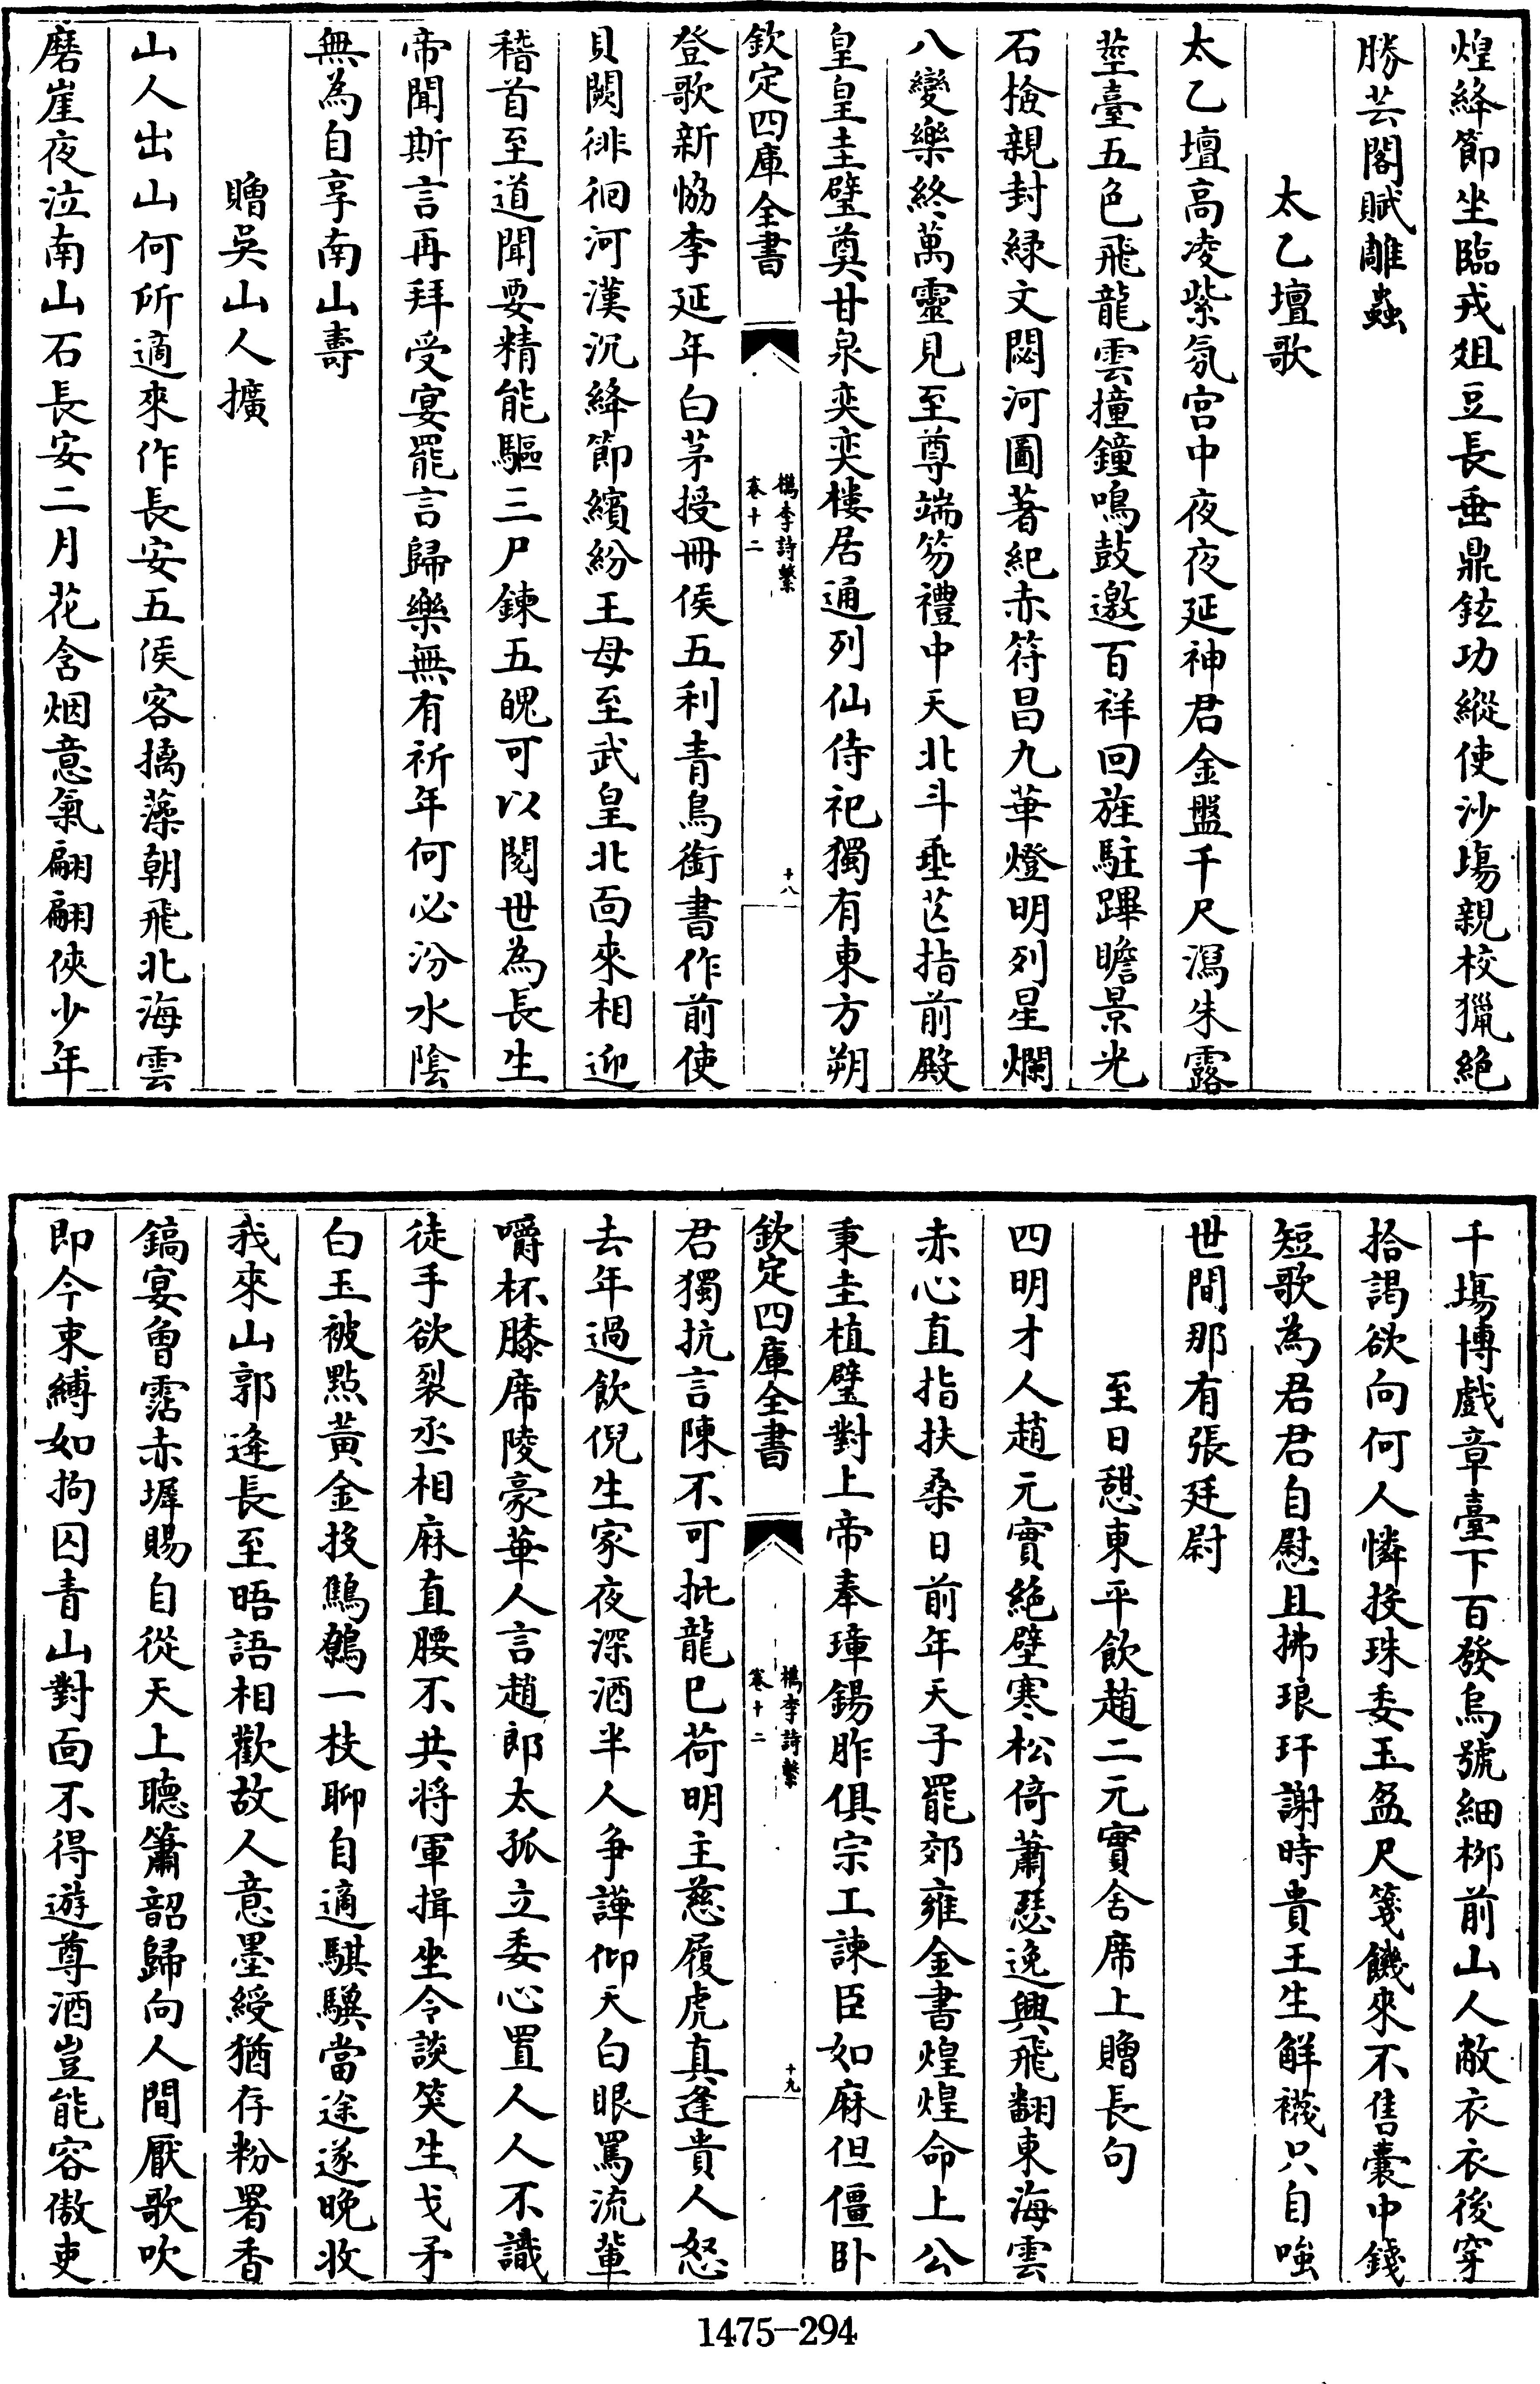 煌絳節坐臨戎俎豆長垂鼎鉉功縱使沙塲親校獵絶
勝芸閣賦雕蟲
太乙壇歌
太乙壇高凌紫氛宫中夜夜延神君金盤千尺瀉朱露
臺五色飛龍雲撞鐘鳴鼓邀百祥回旌駐蹕瞻景光
石檢親封緑文閟河圖著紀赤符昌九華燈明列星爛
八變樂終萬靈見至尊端笏禮中天北斗垂芒指前殿
皇皇圭璧奠甘泉奕奕樓居通列仙侍祀獨有東方朔
欽定四庫全書
檇李詩繫
卷十二
十八
登歌新恊李延年白茅授冊侯五利青鳥銜書作前使
貝闕徘徊河漢沉絳節繽紛王母至武皇北面來相迎
稽首至道聞要精能驅三尸鍊五魄可以閱世為長生
帝聞斯言再拜受宴罷言歸樂無有祈年何必汾水陰
無為自享南山壽
贈吳山人擴
山人出山何所適來作長安五侯客摛藻朝飛北海雲
磨崖夜泣南山石長安二月花含烟意氣翩翩俠少年
千塲博戲章臺下百發烏號細栁前山人敝衣衣後穿
拾謁欲向何人憐投珠委玉盈尺箋饑來不售囊中錢
短歌為君君自慰且拂琅玕謝時貴王生解襪只自嗤
世間那有張廷尉
至日憇東平飲趙二元實舍席上贈長句
四明才人趙元實絶壁寒松倚蕭瑟逸興飛翻東海雲
赤心直指扶桑日前年天子罷郊雍金書煌煌命上公
秉圭植璧對上帝奉璋錫胙俱宗工諫臣如麻但僵卧
欽定四庫全書
檇李詩繫
卷十二
十九
君獨抗言陳不可批龍已荷明主慈履虎真逢貴人怒
去年過飲倪生家夜深酒半人争譁仰天白眼罵流輩
嚼杯膝席陵豪華人言趙郎太孤立委心置人人不識
徒手欲裂丞相麻直腰不共將軍揖坐令談笑生戈矛
白玉被㸃黄金投鷦鷯一枝聊自適騏驥當途遂晚收
我來山郭逢長至晤語相歡故人意墨綬猶存粉署香
鎬宴曾霑赤墀賜自從天上聴簫韶歸向人間厭歌吹
即今束縛如拘囚青山對面不得遊尊酒豈能容傲吏
1475-294